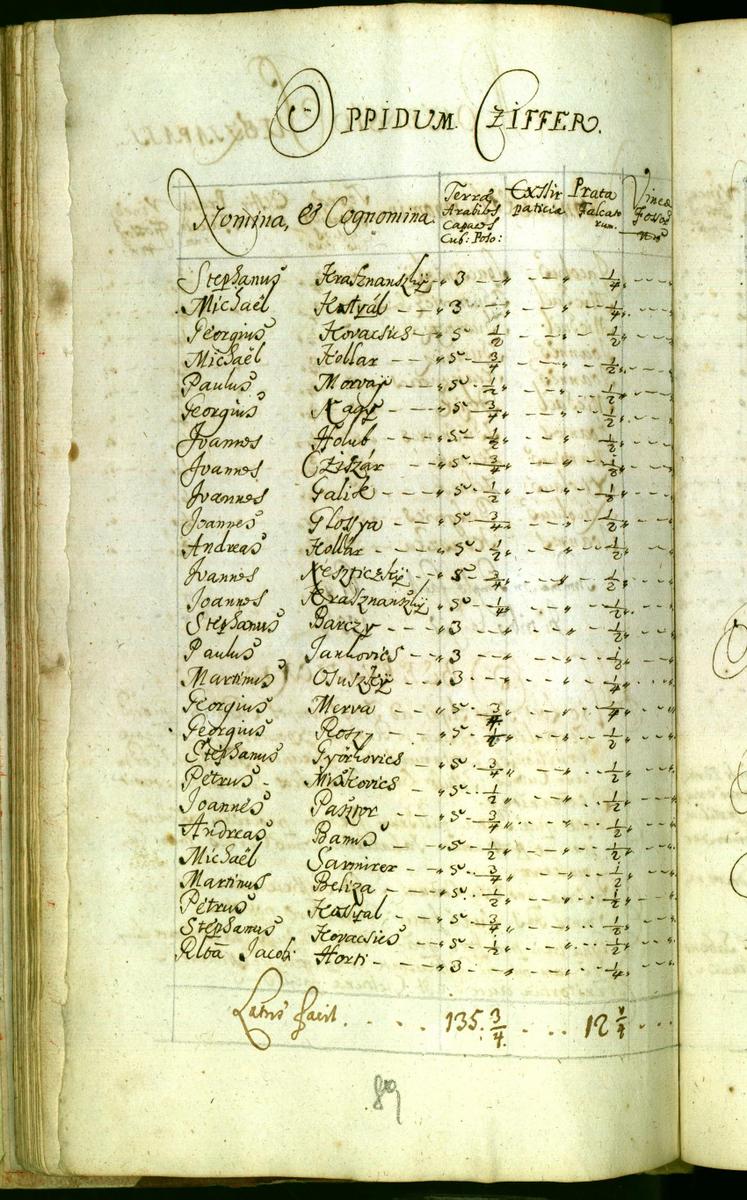 OPPIDUM CZIFFER.
Nomina, & Cognomina. Terræ Arabiles Capaces Cub: Poso: Exstirpaticia Prata Falcatorum. Vineæ Fosso
Stephanus Krasznanszkÿ „ 3 — „ — „ 1/4 „
Michaël Hatÿal — „ 3 — „ — „ 1/4 „
Georgius Kovacsics — „ 5 1/2 „ — „ 1/2 „
Michaël Kollar — „ 5 3/4 „ — „ 1/2 „
Paulus Morvaÿ — „ 5 1/2 „ — „ 1/2 „
Georgius Nagÿ — „ 5 3/4 „ — „ 1/2 „
Joannes Holub — „ 5 1/2 „ — „ 1/2 „
Joannes Cziszár — „ 5 3/4 „ — „ 1/2 „
Joannes Galik — „ 5 1/2 „ — „ 1/2 „
Joannes Glossya — „ 5 3/4 „ — „ 1/2 „
Andreas Kollár — „ 5 1/2 „ — „ 1/2 „
Joannes Neszticzkÿ „ 5 3/4 „ — „ 1/2 „
Joannes Krasznanszkÿ „ 5 1/4 „ — „ 1/2 „
Stephanus Barczy — „ 3 — „ — „ 1/2 „
Paulus Jankovics — „ 3 — „ — „ 1/2 „
Martinus Osuszkÿ — „ 3 — „ — „ 1/4 „
Georgius Merva — „ 5 3/4 „ — „ 1/4 „
Georgius Rosy — „ 5 1/2 „ — „ 1/2 „
Stephanus Györkovics „ 5 3/4 „ — „ 1/2 „
Petrus Miskovics „ 5 1/2 „ — „ 1/2 „
Joannes Pasztor — „ 5 3/4 „ — „ 1/2 „
Andreas Banus — „ 5 1/2 „ — „ 1/2 „
Michaël Sarmirer — „ 5 3/4 „ — „ 1/2 „
Martinus Beliza — „ 5 1/2 „ — „ 1/2 „
Petrus Hatÿal — „ 5 3/4 „ — „ 1/2 „
Stephanus Kovacsics „ 5 1/2 „ — „ 1/2 „
Jacobi Horti — „ 3 — „ — „ 1/4 „
Latus facit . . . 135. 3/4 . . . 12 1/4 . . .
89